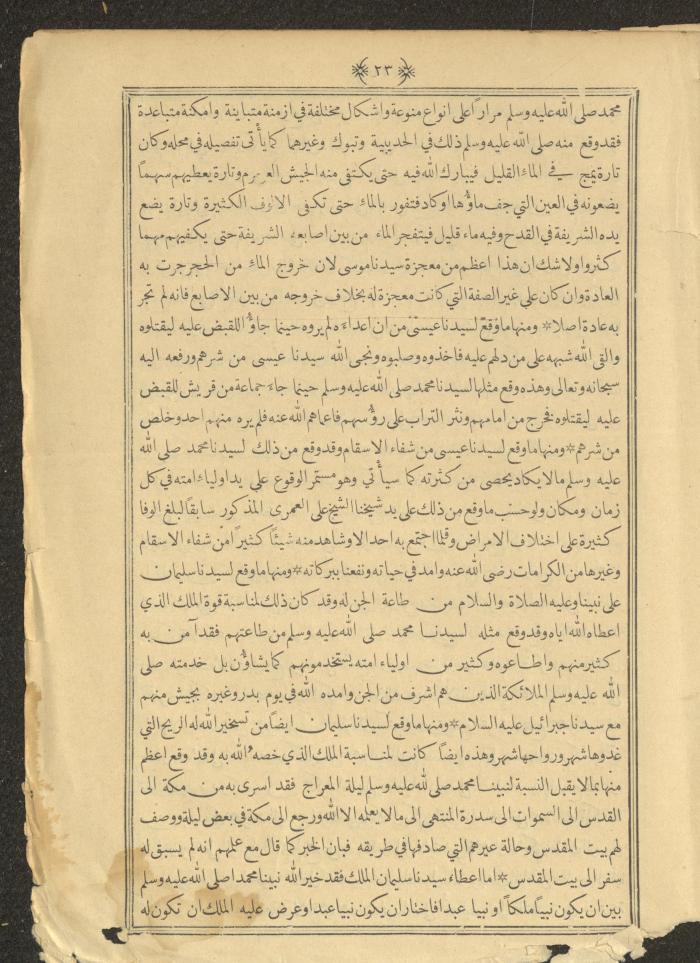 ٢٣
محمد صلى الله عليه وسلم مراراً على انواع منوعة واشكال مختلفة في ازمنة متباينة وامكنة متباعدة
فقد وقع منه صلى الله عليه وسلم ذلك في الحديبية وتبوك وغيرهما كما يأتى تفصيله في محله وكان
تارة يمج في الماء القليل فيبارك الله فيه حتى يكتفى منه الجيش العرمرم وتارة يعطيهم سهماً
يضعونه في العين التي جف ماؤها اوكاد فتفور بالماء حتى تكفى الالوف الكثيرة وتارة يضع
يده الشريفة في القدح وفيه ماء قليل فيتفجر الماء من بين اصابعه الشريفة حتى يكفيهم مهما
كثروا ولاشك ان هذا اعظم من معجزة سيدنا موسى لان خروج الماء من الحجر جرت به
العادة وان كان على غير الصفة التي كانت معجزة له بخلاف خروجه من بين الاصابع فانه لم تجر
به عادة اصلا * ومنها ماوقع لسيدنا عيسى من ان اعداءه لم يروه حينما جاؤا للقبض عليه ليقتلوه
والقى الله شبهه على من دلهم عليه فاخذوه وصلبوه ونجى الله سيدنا عيسى من شرهم ورفعه اليه
سبحانه وتعالى وهذه وقع مثلها لسيدنا محمد صلى الله عليه وسلم حينما جاء جماعة من قريش للقبض
عليه ليقتلوه فخرج من امامهم ونثر التراب على رؤسهم فاعماهم الله عنه فلم يره منهم احد وخلص
من شرهم * ومنها ماوقع لسيدنا عيسى من شفاء الاسقام وقد وقع من ذلك لسيدنا محمد صلى الله
عليه وسلم مالا يكاد يحصى من كثرته كما سيأتي وهو مستمر الوقوع على يد اولياء امته في كل
زمان ومكان ولو حسب ماوقع من ذلك على يد شيخنا الشيخ على العمرى المذكور سابقاً لبلغ الوفا
كثيرة على اختلاف الامراض وقلما اجتمع به احد الا وشاهد منه شيئاً كثيراً من شفاء الاسقام
وغيرها من الكرامات رضى الله عنه وامد في حياته ونفعنا ببركاته * ومنها ماوقع لسيدنا سليمان
على نبينا وعليه الصلاة والسلام من طاعة الجن له وقد كان ذلك لمناسبة قوة الملك الذي
اعطاه الله اياه وقد وقع مثله لسيدنا محمد صلى الله عليه وسلم من طاعتهم فقد آمن به
كثير منهم واطاعوه وكثير من اولياء امته يستخدمونهم كما يشاؤن بل خدمته صلى
الله عليه وسلم الملائكة الذين هم اشرف من الجن وامده الله في يوم بدر وغيره بجيش منهم
مع سيدنا جبرائيل عليه السلام * ومنها ماوقع لسيدنا سليمان ايضاً من تسخير الله له الريح التي
غدوها شهر ورواحها شهر وهذه ايضاً كانت لمناسبة الملك الذي خصه الله به وقد وقع اعظم
منها بما لايقبل النسبة لنبينا محمد صلى الله عليه وسلم ليلة المعراج فقد اسرى به من مكة الى
القدس الى السموات الى سدرة المنتهى الى مالا يعلمه الا الله ورجع الى مكة في بعض ليلة ووصف
لهم بيت المقدس وحالة عيرهم التي صادفها في طريقه فبان الخبر كما قال مع علمهم انه لم يسبق له
سفر الى بيت المقدس * اما اعطاء سيدنا سليمان الملك فقد خير الله نبينا محمدا صلى الله عليه وسلم
بين ان يكون نبياً ملكاً او نبيا عبدا فاختار ان يكون نبيا عبدا وعرض عليه الملك ان تكون له